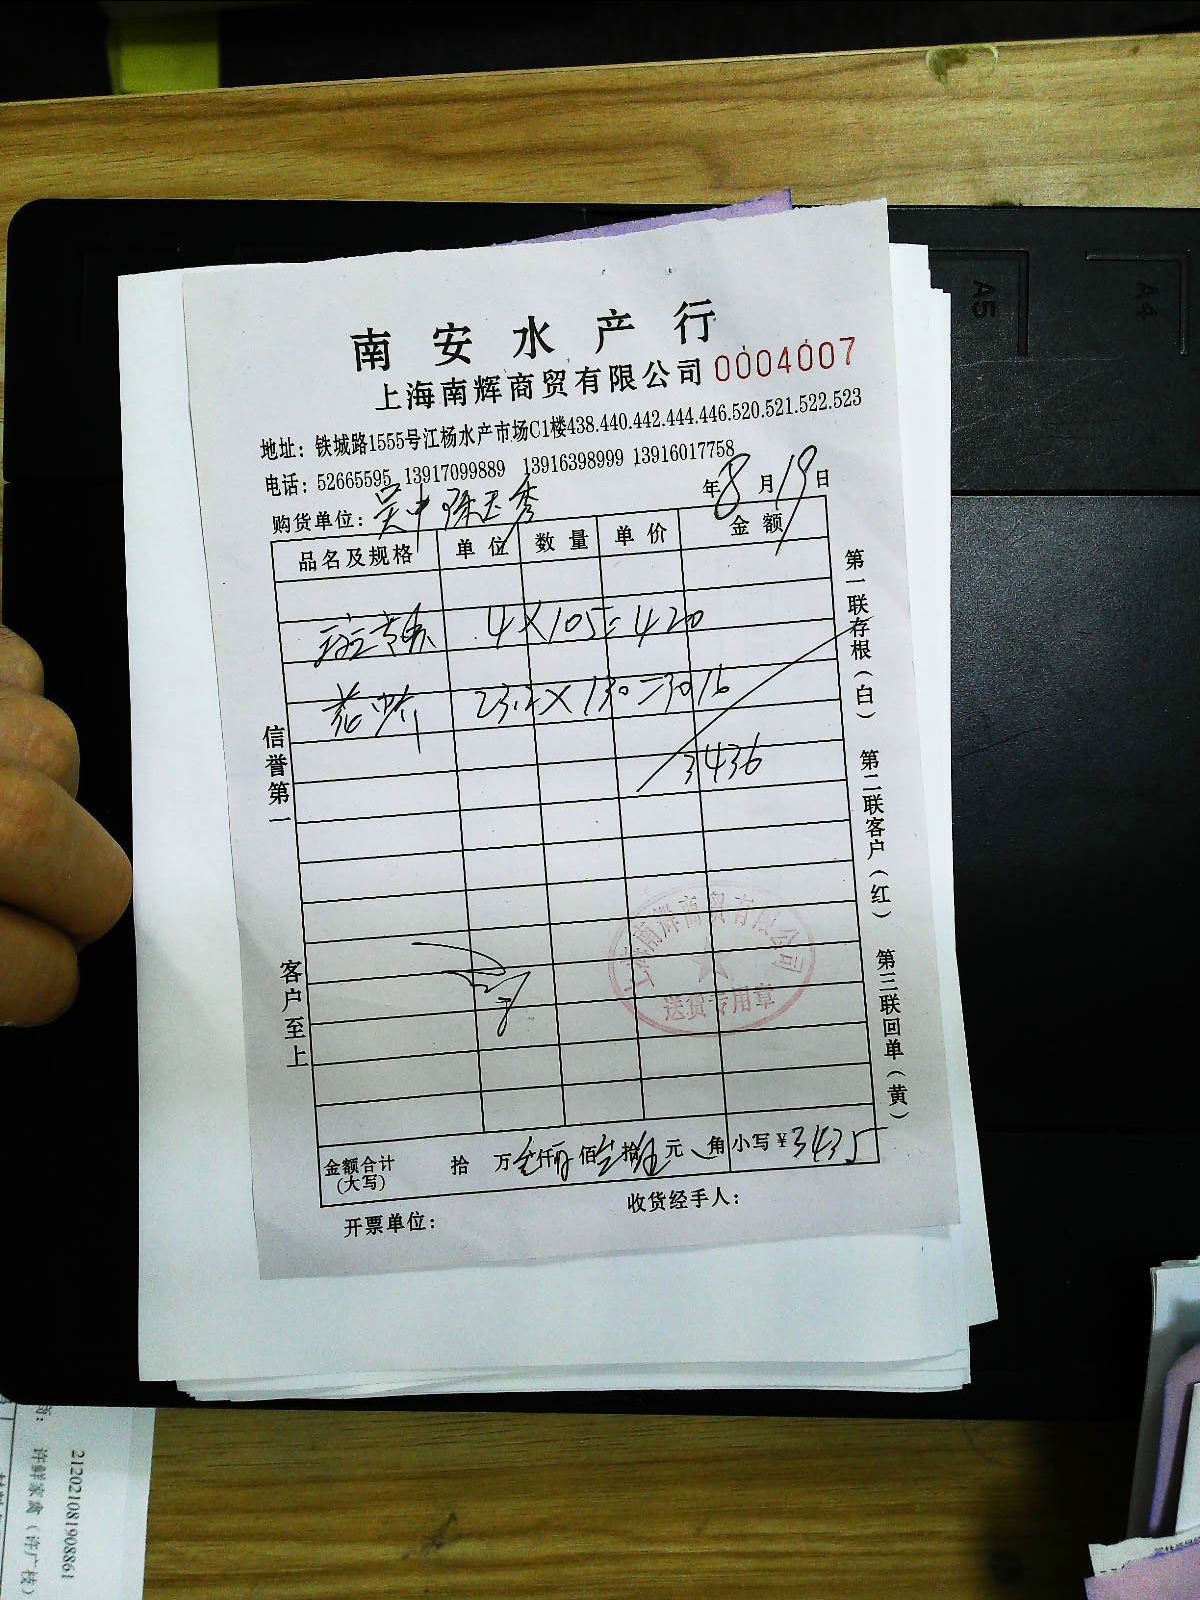 南安水产行
上海南辉商贸有限公司 0004007
地址：铁城路1555号江杨水产市场C1楼438.440.442.444.446.520.521.522.523
电话：52665595 13917099889 13916398999 13916017758
年8月19日
购货单位：吴中陈玉秀
品名及规格 单位 数量 单价 金额
4×105=420
23.2×130=3016
3436
信誉第一
客户至上
第一联存根（白）
第二联客户（红）
第三联回单（黄）
上海南辉商贸有限公司
送货专用章
金额合计 拾 万 仟 佰 拾 元 角 小写￥3435
(大写)
开票单位：
收货经手人：
A5
A4
212021081908861
许鲜家禽（许广枝）